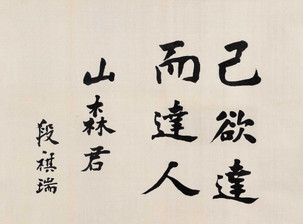 己欲達
而達人
山森君
段祺瑞